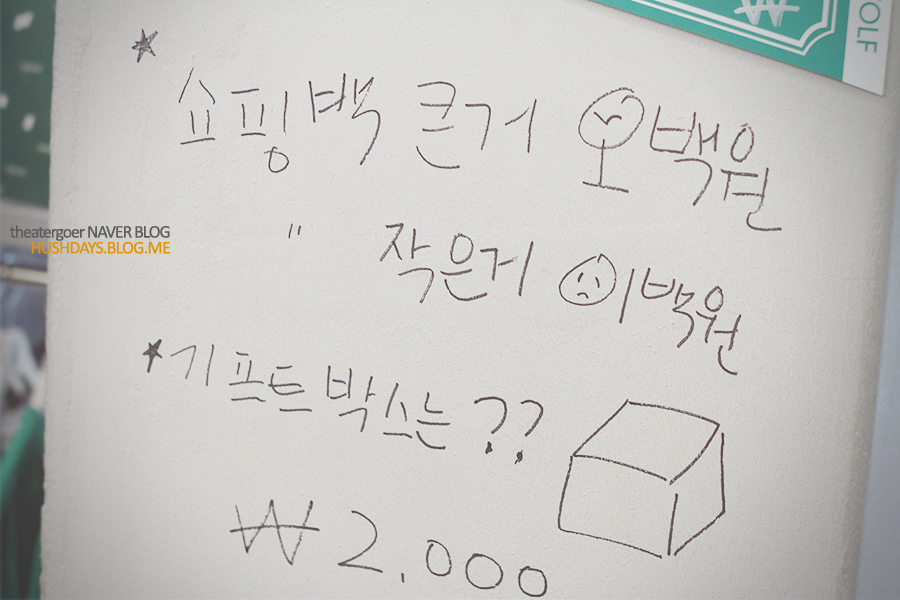 OLF
₩
★ 쇼핑백 큰거 오백원
" 작은거 이백원
theatergoer NAVER BLOG
HUSHDAYS.BLOG.ME
★ 기프트 박스는 ??
₩ 2,000